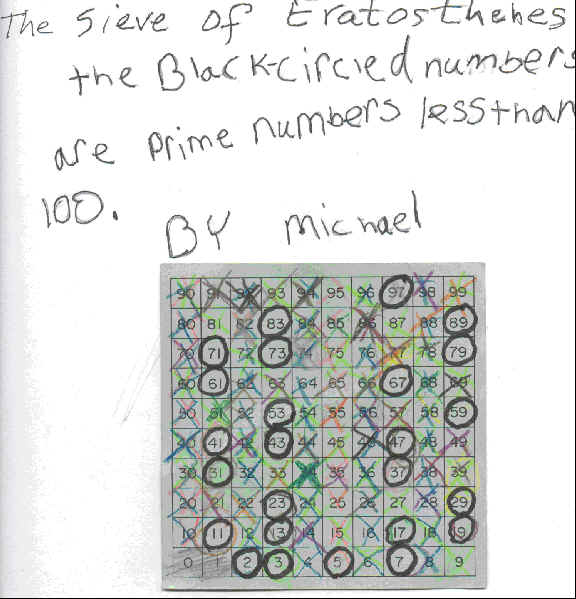 The Sieve of Eratosthenes
the Black-Circled numbers
are prime numbers less than
100.
BY Michael
90 91 92 93 94 95 96 97 98 99
80 81 82 83 84 85 86 87 88 89
70 71 72 73 74 75 76 77 78 79
60 61 62 63 64 65 66 67 68 69
50 51 52 53 54 55 56 57 58 59
40 41 42 43 44 45 46 47 48 49
30 31 32 33 34 35 36 37 38 39
20 21 22 23 24 25 26 27 28 29
10 11 12 13 14 15 16 17 18 19
0 1 2 3 4 5 6 7 8 9